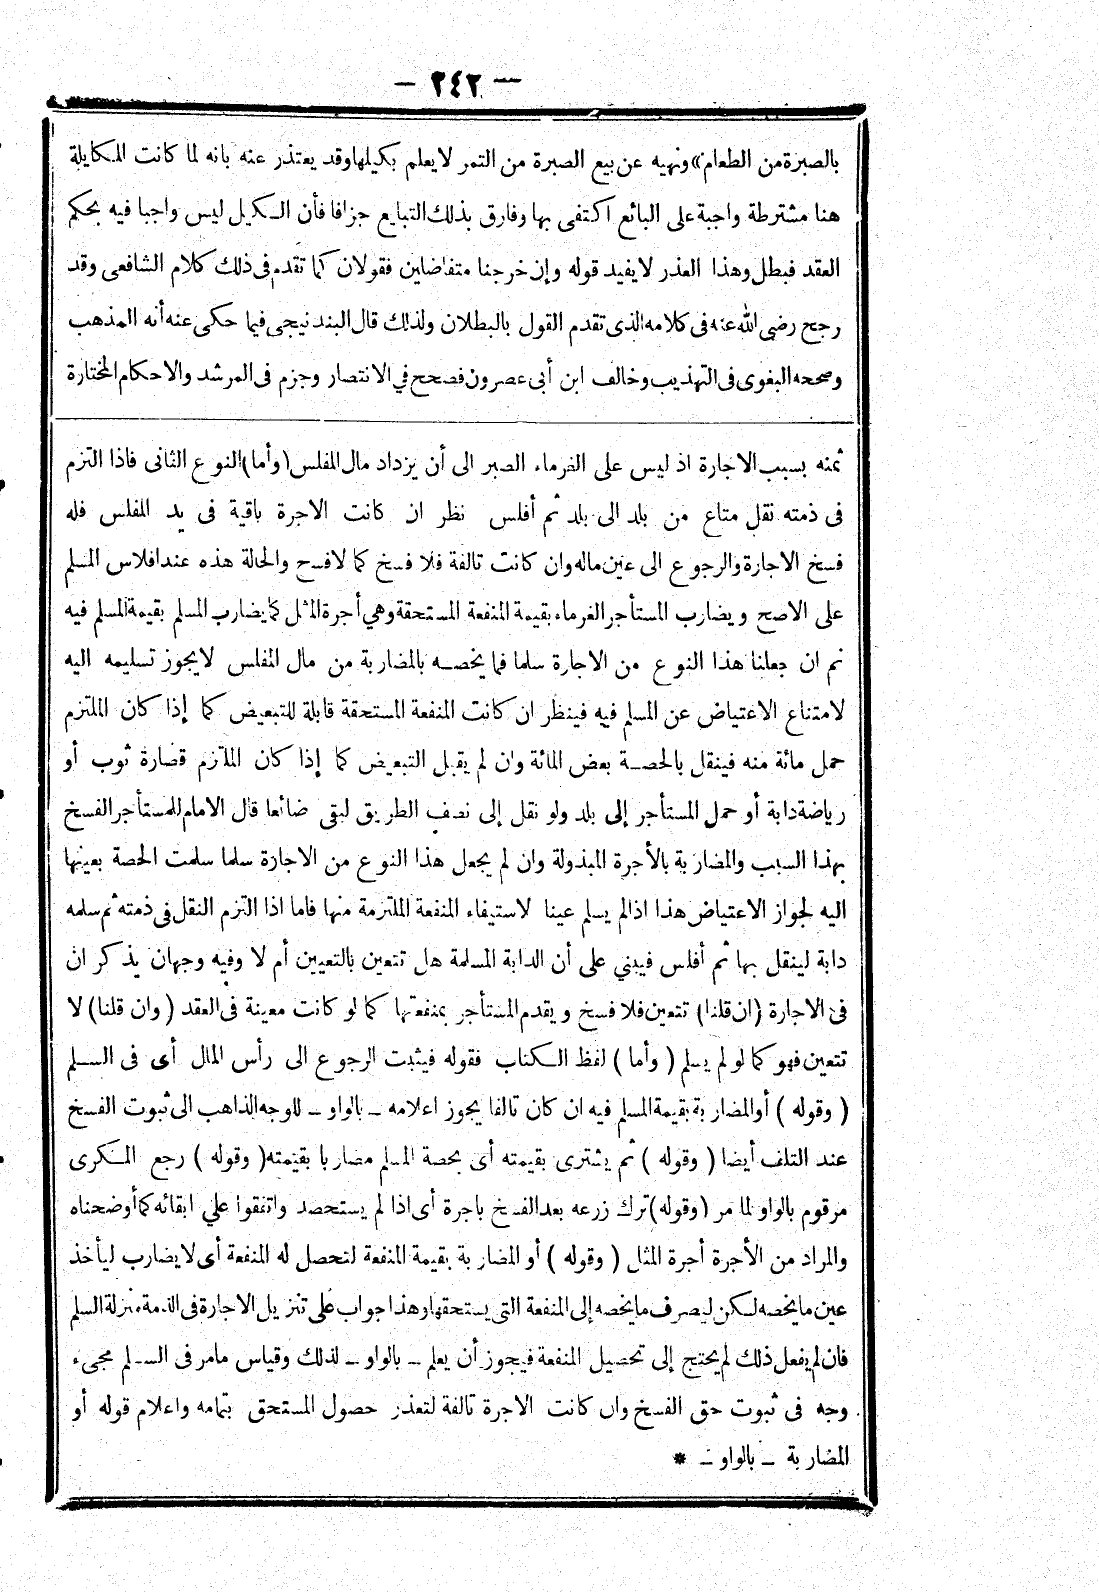 — ٢٤٢ —
بالصبرة من الطعام» ونهيه عن بيع الصبرة من التمر لا يعلم بكيلها وقد يعتذر عنه بانه لما كانت المكايلة
هنا مشترطة واجبة على البائع اكتفى بها وفارق بذلك التبايع جزافا فأن الكيل ليس واجبا فيه بحكم
العقد فبطل وهذا العذر لا يفيد قوله وإن خرجنا متفاضلين فقولان كما تقدم فى ذلك كلام الشافعى وقد
رجح رضى الله عنه فى كلامه الذى تقدم القول بالبطلان ولذلك قال البندنيجى فيما حكى عنه أنه المذهب
وصححه البغوى فى التهذيب وخالف ابن أبى عصرون فصحح في الانتصار وجزم فى المرشد والاحكام المختارة
ثمنه بسبب الاجارة اذ ليس على الغرماء الصبر الى أن يزداد مال المفلس (وأما) النوع الثانى فاذا التزم
فى ذمته نقل متاع من بلد الى بلد ثم أفلس نظر ان كانت الاجرة باقية فى يد المفلس فله
فسخ الاجارة والرجوع الى عين ماله وان كانت تالفة فلا فسخ كما لا فسح والحالة هذه عند افلاس المسلم
على الاصح ويضارب المستأجر الغرماء بقيمة المنفعة المستحقة وهي أجرة المثل كما يضارب المسلم بقيمة المسلم فيه
ثم ان جعلنا هذا النوع من الاجارة سلما فما يخصه بالمضاربة من مال المفلس لا يجوز تسليمه اليه
لامتناع الاعتياض عن المسلم فيه فينظر ان كانت المنفعة المستحقة قابلة للتبعيض كما إذا كان الملتزم
حمل مائة منه فينقل بالحصة بعض المائة وان لم يقبل التبعيض كما إذا كان الملتزم قصارة ثوب أو
رياضة دابة أو حمل المستأجر إلى بلد ولو نقل إلى نصف الطريق لبقى ضائعا قال الامام للمستأجر الفسخ
بهذا السبب والمضاربة بالأجرة المبذولة وان لم يجعل هذا النوع من الاجارة سلما سلمت الحصة بعينها
اليه لجواز الاعتياض هذا اذا لم يسلم عينا لاستيفاء المنفعة الملتزمة منها فاما اذا التزم النقل فى ذمته ثم سلمه
دابة لينقل بها ثم أفلس فيبني على أن الدابة المسلمة هل تتعين بالتعيين أم لا وفيه وجهان يذكران
فى الاجارة (ان قلنا) تتعين فلا فسخ ويقدم المستأجر بمنفعتها كما لو كانت معينة فى العقد (وان قلنا) لا
تتعين فهو كما لو لم يسلم (وأما) لفظ الكتاب فقوله فيثبت الرجوع الى رأس المال أى فى السلم
(وقوله) أو المضاربة بقيمة المسلم فيه ان كان تالفا يجوز اعلامه ــ بالواو ــ للوجه الذاهب الى ثبوت الفسخ
عند التلف أيضا (وقوله) ثم يشترى بقيمته أى بحصة المسلم مضاربا بقيمته (وقوله) رجع المكرى
مرقوم بالواو لما مر (وقوله) ترك زرعه بعد الفسخ باجرة أى اذا لم يستحصد واتفقوا علي ابقائه كما أوضحناه
والمراد من الأجرة أجرة المثل (وقوله) أو المضاربة بقيمة المنفعة لتحصل له المنفعة أى لا يضارب ليأخذ
عين ما يخصه لكن ليصرف ما يخصه إلى المنفعة التى يستحقها وهذا جواب على تنزيل الاجارة فى الذمة منزلة السلم
فان لم يفعل ذلك لم يحتج إلى تحصيل المنفعة فيجوز أن يعلم ــ بالواو ــ لذلك وقياس ما مر فى السلم مجىء
وجه فى ثبوت حق الفسخ وان كانت الاجرة تالفة لتعذر حصول المستحق بتمامه واعلام قوله أو
المضاربة ــ بالواو ــ *